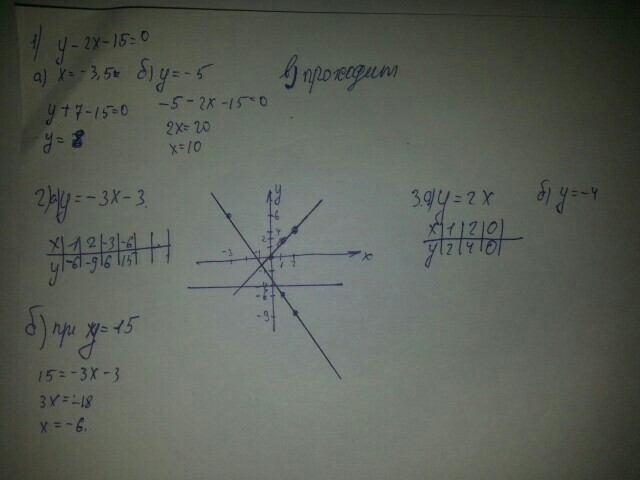 1) y - 2x - 15 = 0
а) x = -3,5 б) y = -5 в) проходит
y + 7 - 15 = 0 -5 - 2x - 15 = 0
y = 8 2x = 20
x = 10
2) а) y = -3x - 3.
x | -1 | 2 | -3 | -6 |
y | -6 | -9 | 6 | 15 |
y
6
4
2
-3
x
-6
-9
3. а) y = 2x б) y = -4
x | 1 | 2 | 0 |
y | 2 | 4 | 0 |
б) при y = 15
15 = -3x - 3
3x = -18
x = -6.